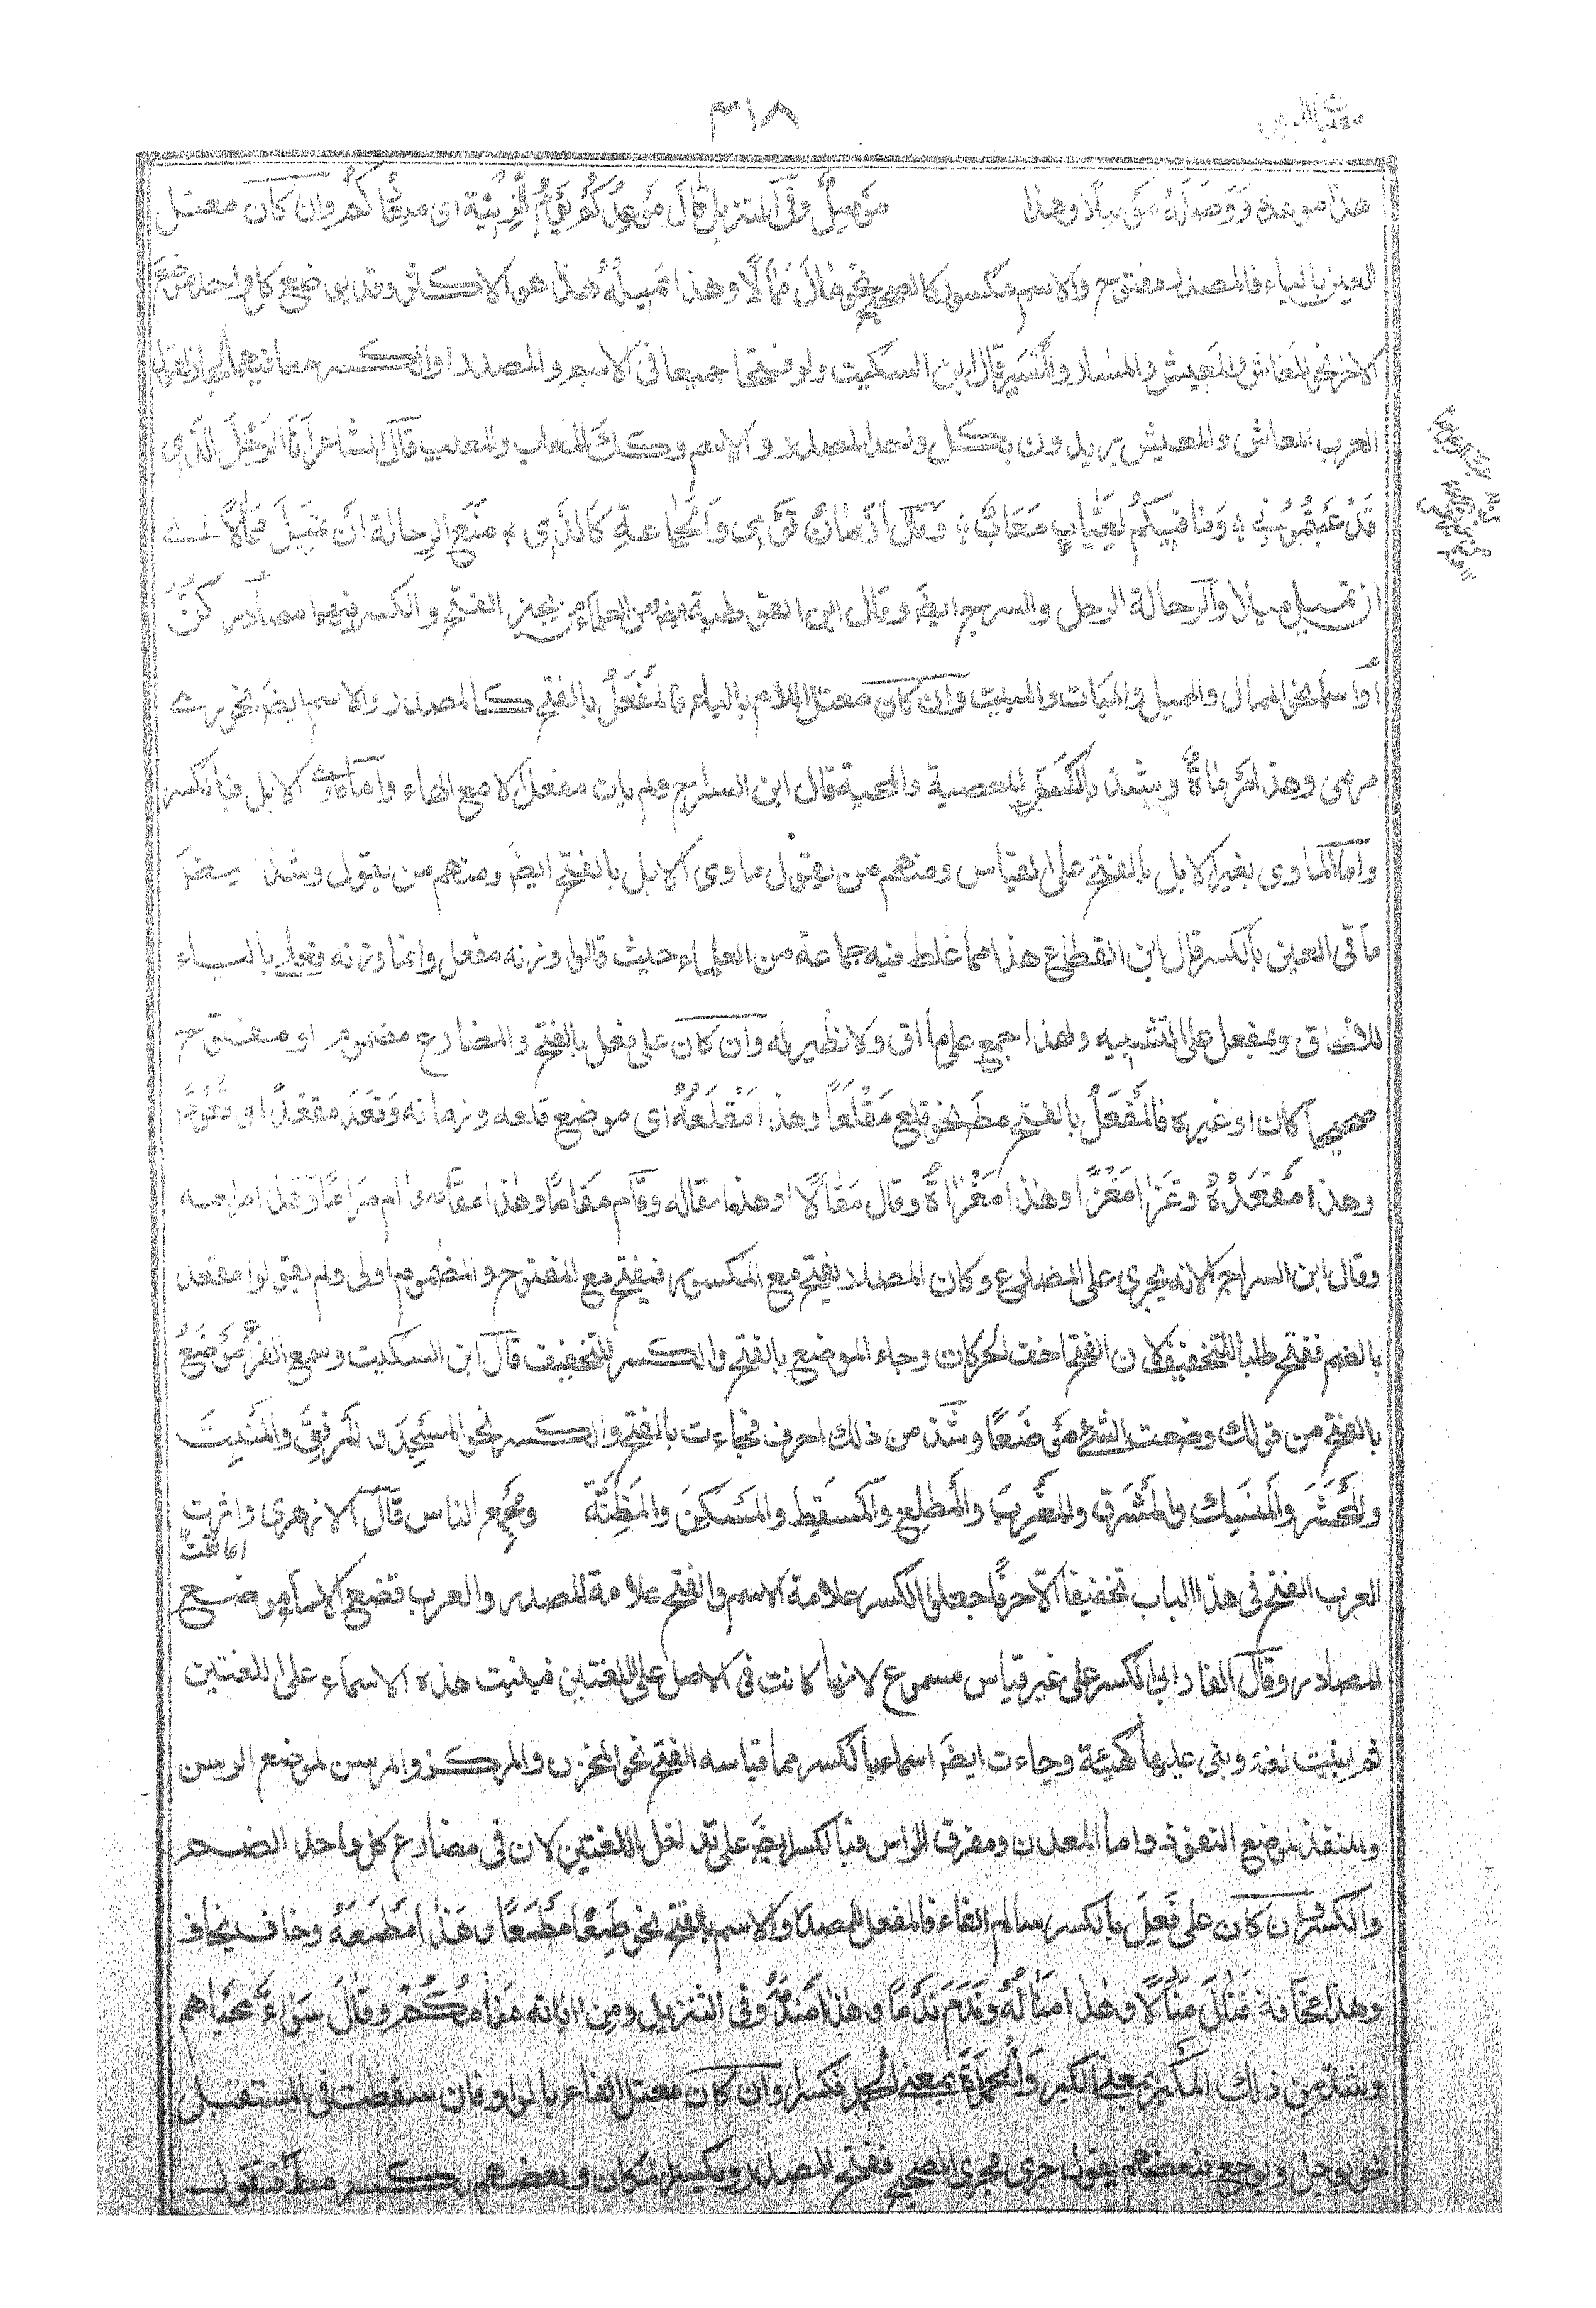 ٣١٨
هذا موعده وَوَصَلَهُ مَوْصِلًا وهذا مَوْصِلُهُ وفى التنزيل قالَ مَوعِدُكُم يَوْمُ الزِينَةِ اى ميقاتكم وان كان معتل
العين بالياء فالمصدر مفتوح والاسم مكسور كالصحيح نحو مال مَمَالًا وهذا مَمِيلُهُ هذا هو الاكثر وقد يوضع كل واحد موضع
الاخر نحو المعَاش والمَعِيش والمسار والمَسِير قال ابن السكيت ولو فتحتا جميعا فى الاسم والمصدر او الكسر معا فيهما لجاز لقول
العرب المعاش والمعيش يريدون بكل واحد المصدر والاسم وكذلك المعاب والمعيب قال الشاعر اَنَا الرَجُلُ الذَى
قَدْ عِبْتُمُونِى ؛ وَمَا فِيكُم لِعَيَّابٍ مَعَابٌ ؛ وَقَالَ اَزْمَانَ قَوْمِى وَالجَمَاعَةِ كَالذَى ؛ مَنَعَ الرِحَالَةَ اَنْ تَمِيلَ مَمَالًا اے
ان تميل ميلا والرحالة الرحل والسرج ايضَ وقال ابن القوطية ايضَ ومن العلماء من يجيز الفتح والكسر فيهما مصادر كُنَّ
او اسما نحو الممال والمميل والمبات والمبيت وان كان معتل اللام بالياء فالمَفْعَلُ بالفتح كالمصدر والاسم ايضَ نحو رمى
مرمى وهذا مَرْمَاهُ وشذ بالكسر المعصية والمحمية قال ابن السراج ولم يات مفعل الا مع الهاء واما ماوى الابل فبالكسر
واما الماوى بغير الابل بالفتح على القياس ومنهم من يقول ماوى الابل بالفتح ايضَ ومنهم من يقول وشذ ايضَ
ماقى العين بالكسر قال ابن القطاع هذا مما غلط فيه جماعة من العلماء حيث قالوا وزنه مفعل وانما وزنه فعلى بالياء
للالحاق وبمفعل على التشبيه ولهذا جمع على ماٰق ولا نظير له وان كان على فعل بالفتح والمضارع مضموم او مفتوح
صحيحا كان او غيره فالمَفْعَلُ بالفتح مطَ نحو قلع مَقْلَعًا وهذا مَقْلَعُهُ اى موضع قلعه وزمانه وَقعَدَ مقعدًا اى قُعُودًا
وهذا مَقْعَدُهُ وغَزَا مَغْزًا وهذا مَغْزَاهُ وقال مَقَالًا وهذا مقاله وقام مَقَامًا وهذا مقامه ورام مَرَامًا وهذا مرامه
وقال ابن السراج لانه يجرى على المضارع وكان المصدر يفتح مع المكسور فيفتح مع المفتوح والمضموم اولى ولم يقولوا مفعل
بالضم ففتح طلبا للتخفيف لان الفتح اخف الحركات وجاء الموضع بالفتح والكسر للتخفيف قال ابن السكيت وسمع الفرّاء مَوْضَعٌ
بالفتح من قولك وضعت الشئ مَوْضَعًا وشذ من ذلك احرف فجاءت بالفتح والكسر نحو المسجِد والمَرفِق والمَنبِت
والمَحشَر والمَنسِك والمَشرِق والمَغرِب والمَطلِع والمَسقِط والمَسكِن والمَظِنّة ومَجمِع الناس قال الازهرى واثرت
العرب الفتح فى هذا الباب تخفيفا الّا احرفًا جعلوا الكسر علامة الاسم والفتح علامة المصدر والعرب تضع الاسماء موضع
المصادر وقال الفارابى الكسر على غير قياس مسموع لانها كانت فى الاصل على اللغتين فبنيت هذه الاسماء على اللغتين
ثم اميتت لغة وبقى عليها كهيئة وجاءت ايضَ اسماء بالكسر مما قياسه الفتح نحو المخزن والمركز والمرسن لموضع الرسن
والمنفذ لموضع النفوذ واما المعدن ومفرق الراس فبالكسر ايضَ على تداخل اللغتين لان فى مضارع كل واحد الضم
والكسر وان كان على فَعِلَ بالكسر سالم الفاء فالمفعل للمصدر والاسم بالفتح نحو طَمِعَ مَطْمَعًا وهَذَا مَطْمَعُهُ وخاف يخاف
وهذا مخَافَة فَنَالَ مَنَالًا وهذا مَنَالُهُ وفى التنزيل ومِن ايَاتِه مَنَامُكُم وقالَ سَوَاءً مَحيَاهم
وشذ من ذلك المكبِر بمعنى الكبر وَالمحمِدَةَ بمعنى الحمد فكسرا وان كان معتل الفاء بالواو فان سقطت فى المستقبل
نحو يوجل ويوجع فبعضهم يقول جرى مجرى الصحيح ففتح المصدر ويكسر المكان وبعضهم يكسر مطَ فتقول